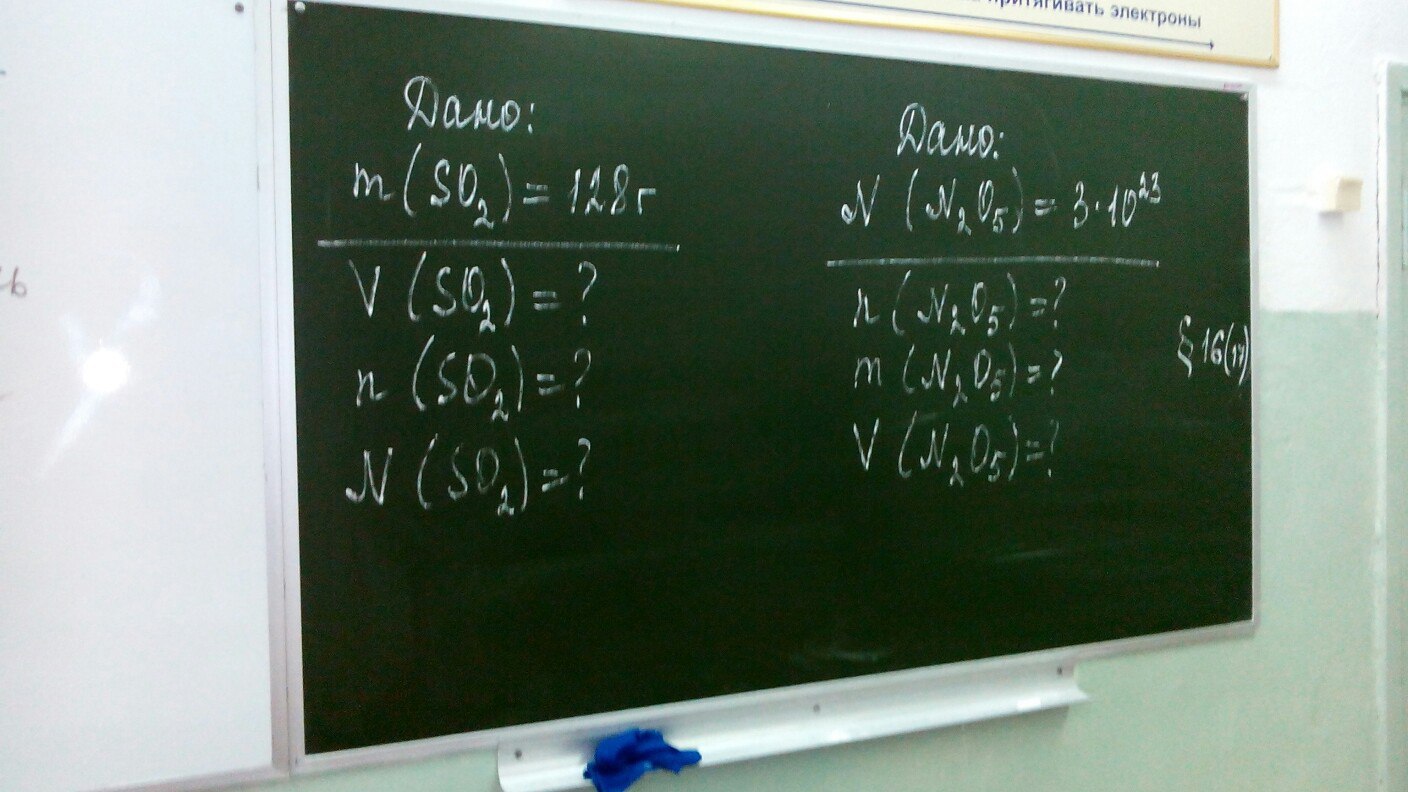 притягивать электроны
Дано:
m(SO₂) = 128г
V (SO₂) = ?
n (SO₂) = ?
N (SO₂) = ?
Дано:
N (N₂O₅) = 3·10²³
n (N₂O₅) = ?
m (N₂O₅) = ?
V (N₂O₅) = ?
§ 16(17)